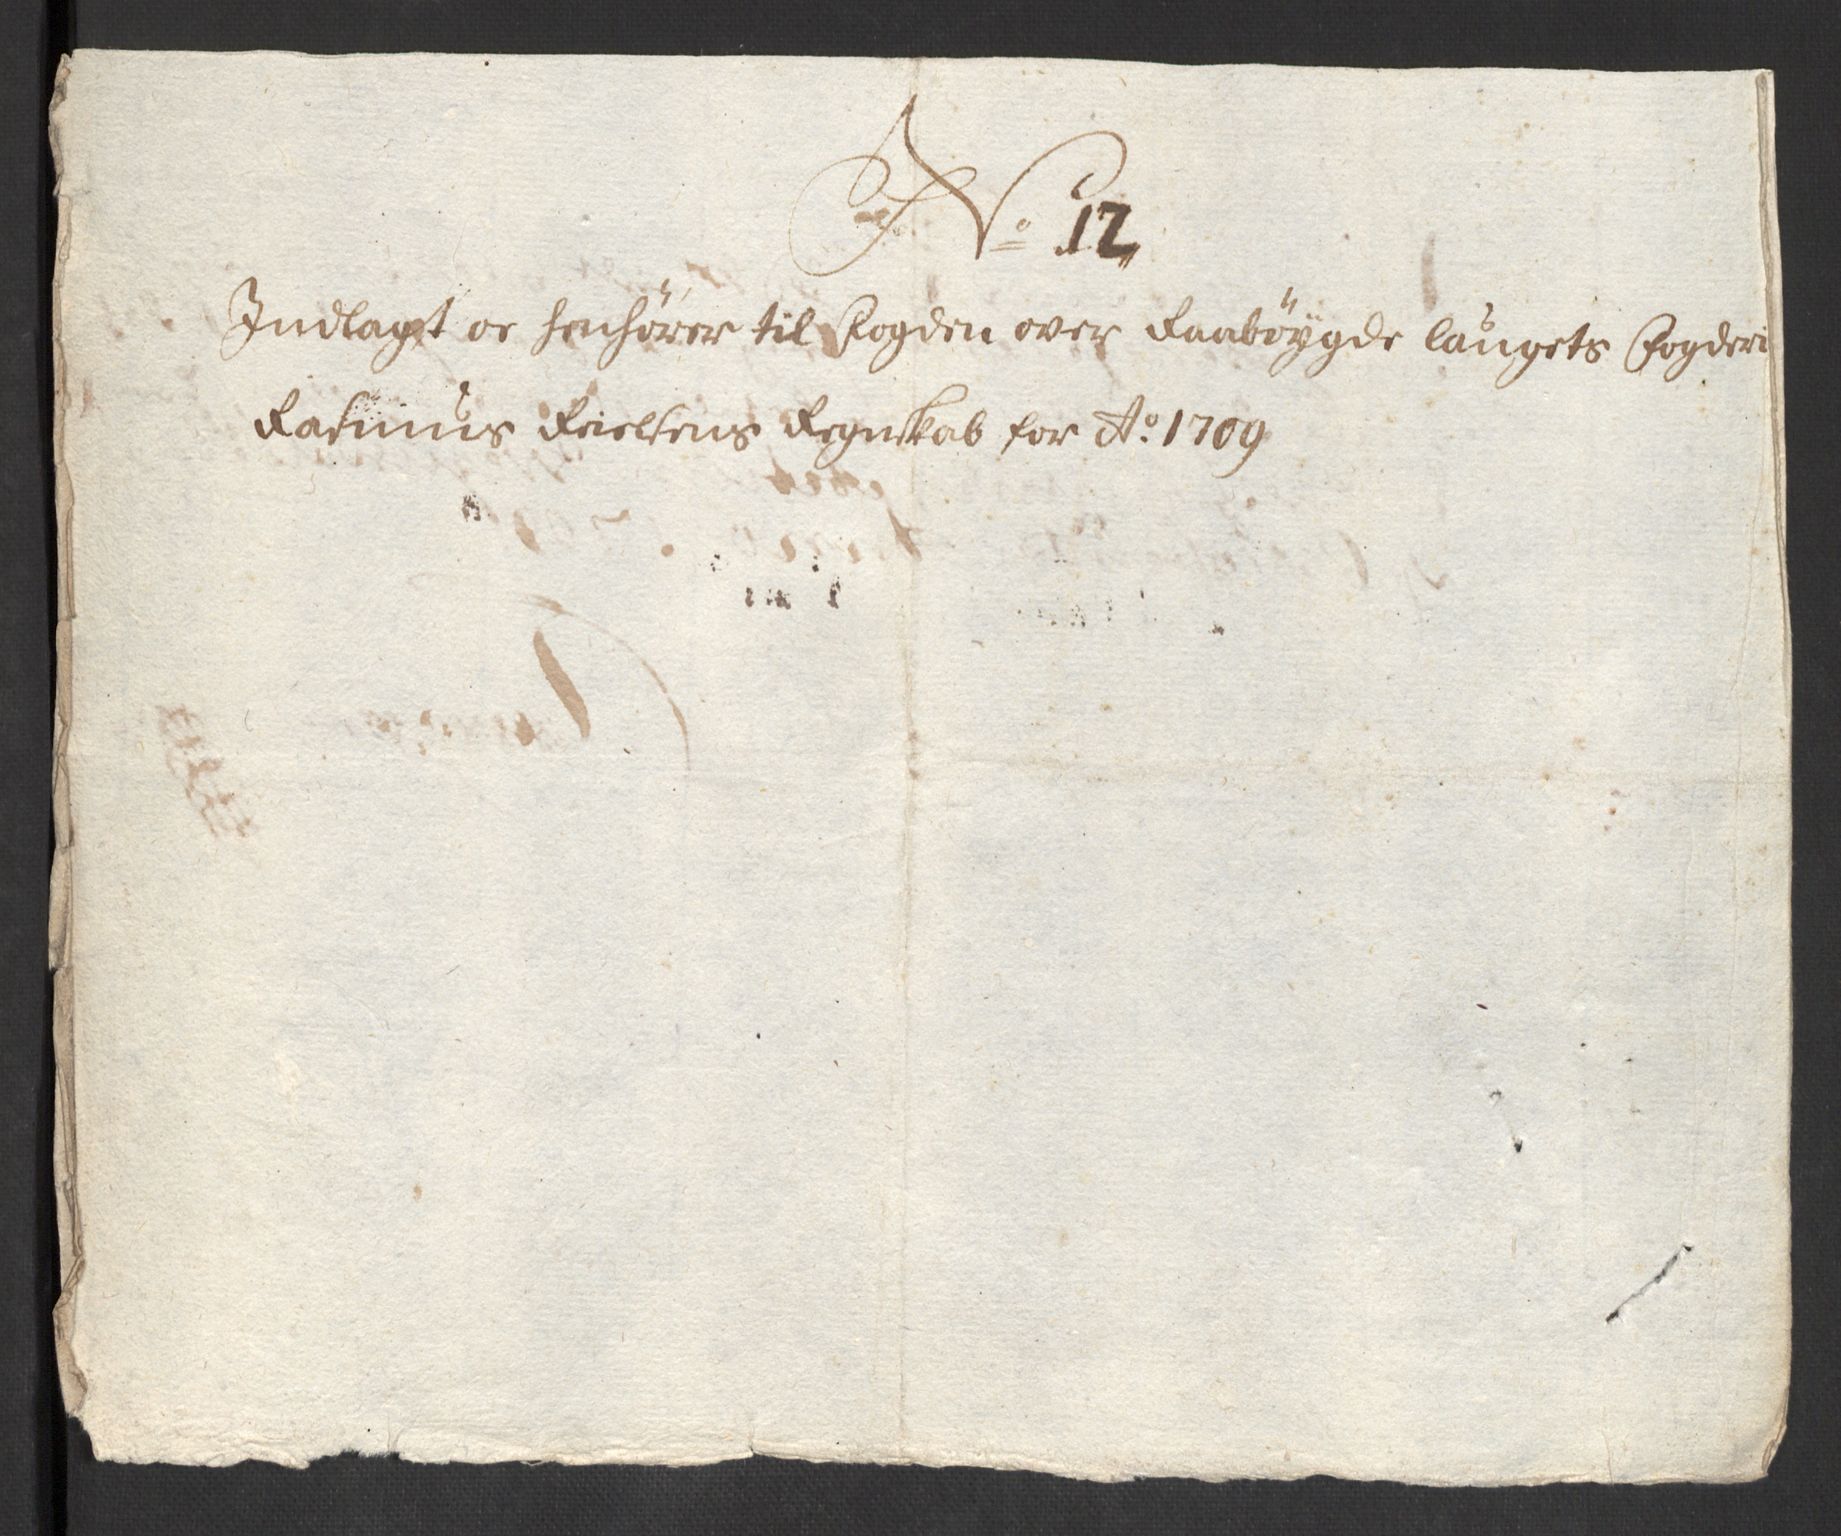 No 12
Indlagt oc henhører til Fogden over Raabøygde laugets Fogderi
Rasmus Nielsens Regnskab for Ao: 1709